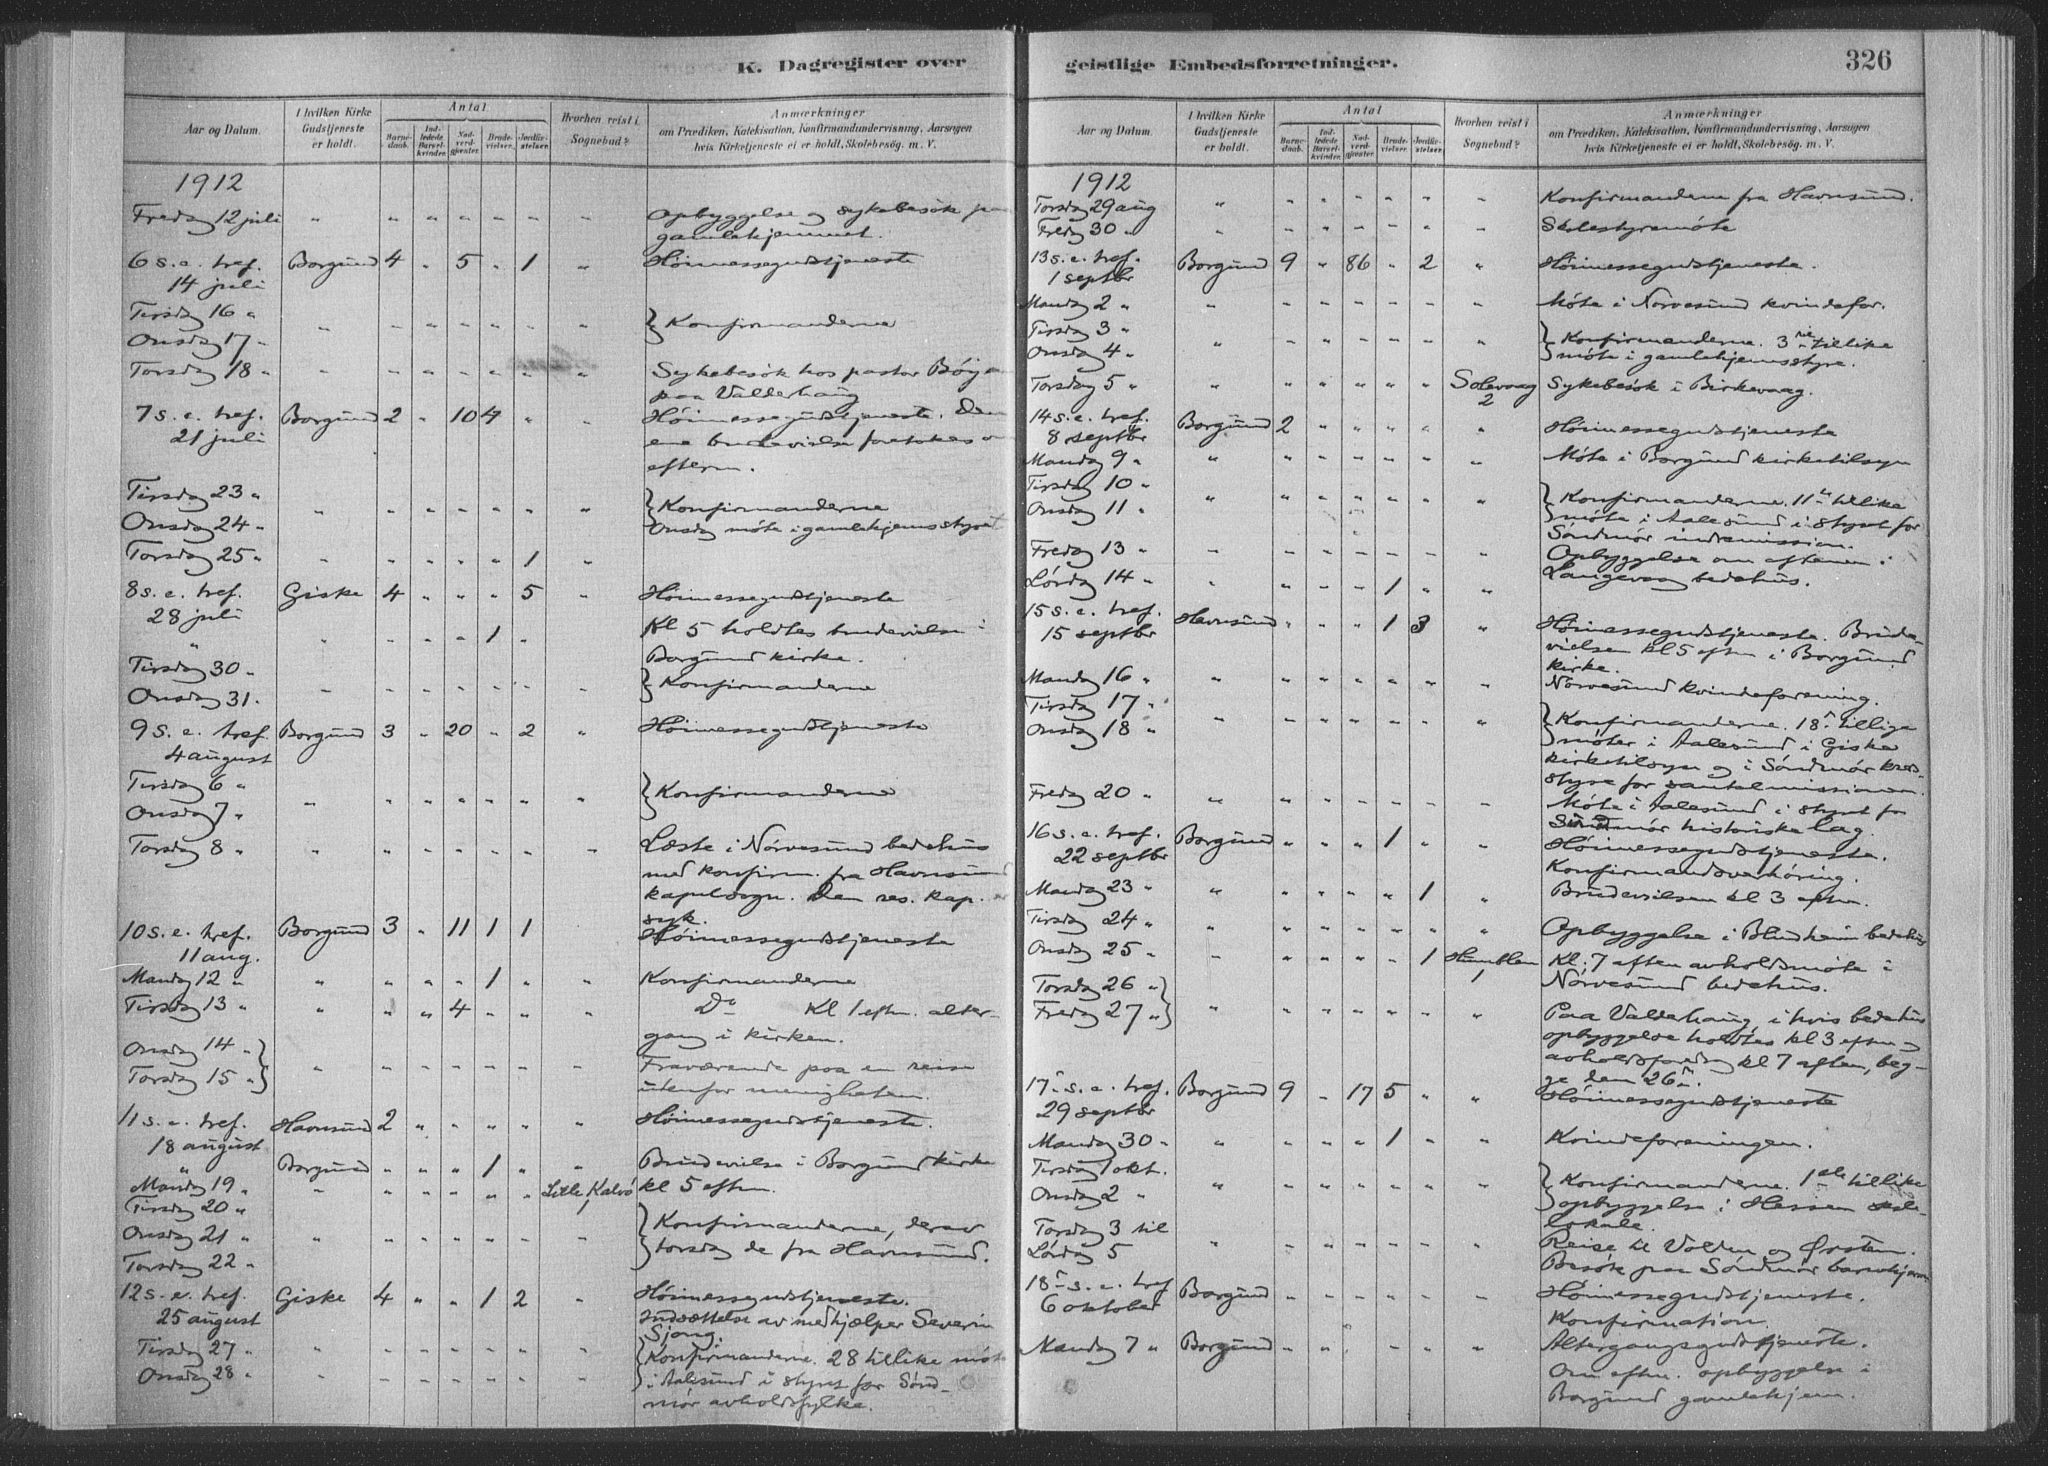 K. Dagregister over
Aar og Datum.
I hvilken Kirke Gudstjeneste er holdt.
Antal
Barne-daab.
Ind-ledede Barsel-kvinder.
Nad-verd-gjester.
Brude-vielser.
Jordfæ-stelser.
Hvorhen reist i Sognebud?
Anmærkninger
om Prædiken, Katekisation, Konfirmandundervisning, Aarsagen
hvis Kirketjeneste ei er holdt, Skolebesøg. m. V.
1912
Fredag 12 juli " " " " " " " Opbyggelse og sykebesøk paa
gamlehjemmet.
6 s. e. tref. Borgund 4 " 5 " 1 " Høimessegudstjeneste
14 juli
Tirsdag 16 "
Onsdag 17 " " " " " " " " } Konfirmanderne
Torsdag 18 " " " " " " " Sykebesøk hos pastor
paa Valderhaug
7 s. e. tref. Borgund 2 " 10 4 " " Høimessegudstjeneste. Den
21 juli ene brudevielse foretokes
efterm.
Tirsdag 23 "
Onsdag 24 " " " " " " " " } Konfirmanderne
Onsdag møte i gamlehjemsstyret
Torsdag 25 " " " " " " 1 "
8 s. e. tref. Giske 4 " " " 5 " Høimessegudstjeneste
28 juli
" " " " " 1 " Kl 5 holdtes brudevielse i
Borgund kirke.
Tirsdag 30 "
Onsdag 31. " " " " " " " } Konfirmanderne
9 s. e. tref. Borgund 3 " 20 " 2 " Høimessegudstjeneste
4 august
Tirsdag 6 "
Onsdag 7 " " " " " " " " } Konfirmanderne
Torsdag 8 " " " " " " " " Læste i Nørvesund bedehus
med konfirm. fra Havnsund
kapelsogn. Den res. kap.
syk.
10 s. e. tref. Borgund 3 " 11 1 1 Høimessegudstjeneste
11 aug.
Mandag 12 " " " " " 1 " " Konfirmanderne
Tirsdag 13 " " " " 4 " " " Do Kl 1 eftm. alter-
gang i kirken.
Onsdag 14 "
Torsdag 15 " } " " " " " " " Fraværende paa en reise
utenfor menigheten.
11 s. e. tref. Havnsund 2 " " " " " Høimessegudstjeneste.
18 august
" Borgund " " " 1 " " Brudevielse i Borgund kirke
Mandag 19 " " " " " " " Litle Kalvø 1 kl 5 eftm.
Tirsdag 20 "
Onsdag 21 " " " " " " " " } Konfirmanderne, derav
Torsdag 22 " torsdag de fra Havnsund.
12 s. e. tref. Giske 4 " " 1 2 " Høimessegudstjeneste.
25 august Indsættelse av medhjælper Severin
Sjong.
Tirsdag 27 " " " " " " " " { Konfirmanderne. 28 tillike møte
Onsdag 28 " " " " " " " " i Aalesund i styret for Sønd-
mør avholdsfylke.
geistlige Embedsforretninger.
326
Aar og Datum.
I hvilken Kirke Gudstjeneste er holdt.
Antal
Barne-daab.
Ind-ledede Barsel-kvinder.
Nad-verd-gjester.
Brude-vielser.
Jordfæ-stelser.
Hvorhen reist i Sognebud?
Anmærkninger
om Prædiken, Katekisation, Konfirmandundervisning, Aarsagen
hvis Kirketjeneste ei er holdt, Skolebesøg. m. V.
1912
Torsdag 29 aug " " " " " " " Konfirmanderne fra Havnsund.
Fredag 30 " " " " " " " " Skolestyremøte
13 s. e. tref. Borgund 9 " 86 " 2 " Høimessegudstjeneste.
1 septbr
Mandag 2 " " " " " " " " Møte i Nørvesund kvindefor.
Tirsdag 3 "
Onsdag 4 " " " " " " " " } Konfirmanderne. 3die tillike
møte i gamlehjemsstyre.
Torsdag 5 " " " " " " " Solevaag 2 Sykebesøk i Birkevaag.
14 s. e. tref. Borgund 2 " " " " " Høimessegudstjeneste
8 septbr
Mandag 9 " " " " " " " " Møte i Borgund kirketilsyn
Tirsdag 10 "
Onsdag 11 " " " " " " " " } Konfirmanderne. 11te tillike
møte i Aalesund i styret for
Søndmør indremission.
Fredag 13 " " " " " " " " Opbyggelse om aftenen i
Langevaag bedehus.
Lørdag 14 " " " " " 1 " "
15 s. e. tref. Havnsund " " " 1 3 " Høimessegudstjeneste. Brude-
15 septbr vielsen kl 5 eftm i Borgund
kirke.
Mandag 16 " " " " " " " " Nørvesund kvindeforening.
Tirsdag 17 "
Onsdag 18 " " " " " " " " } Konfirmanderne. 18de tillige
møter i Aalesund i Giske
kirketilsyn og i Søndmør kreds-
styre for santalmissionen.
Fredag 20 " " " " " " " " Møte i Aalesund i styret for
Søndmør historiske lag.
16 s. e. tref. Borgund " " " 1 " " Høimessegudstjeneste.
22 septbr Konfirmandoverhøring.
Mandag 23 " " " " " " 1 " Brudevielsen kl 3 eftm.
Tirsdag 24 " " " " " " " " Opbyggelse i Blindheim bedehus
Onsdag 25 " " " " " " 1 Humblen 1 Kl. 7 aften avholdsmøte i
Nørvesund bedehus.
Torsdag 26 "
Fredag 27 " } " " " " " " " Paa Valderhaug i hvis bedehus
opbyggelse holdtes kl 3 eftm og
avholdsforedrag kl 7 aften, beg-
ge den 26de.
17de s. e. tref. Borgund 9 " 17 5 " " Høimessegudstjeneste
29 septbr
Mandag 30 " " " " " 1 " " Kvindeforeningen.
Tirsdag 1 okt.
Onsdag 2 " " " " " " " " } Konfirmanderne. 1ste tillike
opbyggelse i Hessen skole-
lokale.
Torsdag 3 til
Lørdag 5 " " " " " " " Reise til Volden og Ørsten.
Besøk paa Søndmør barnehjem
18de s. e. tref. Borgund " " " " " " Høimessegudstjeneste.
6 oktober Konfirmation.
Mandag 7 " Borgund " " " " " Altergangsgudstjeneste.
Om eftm. opbyggelse i
Borgund gamlehjem.